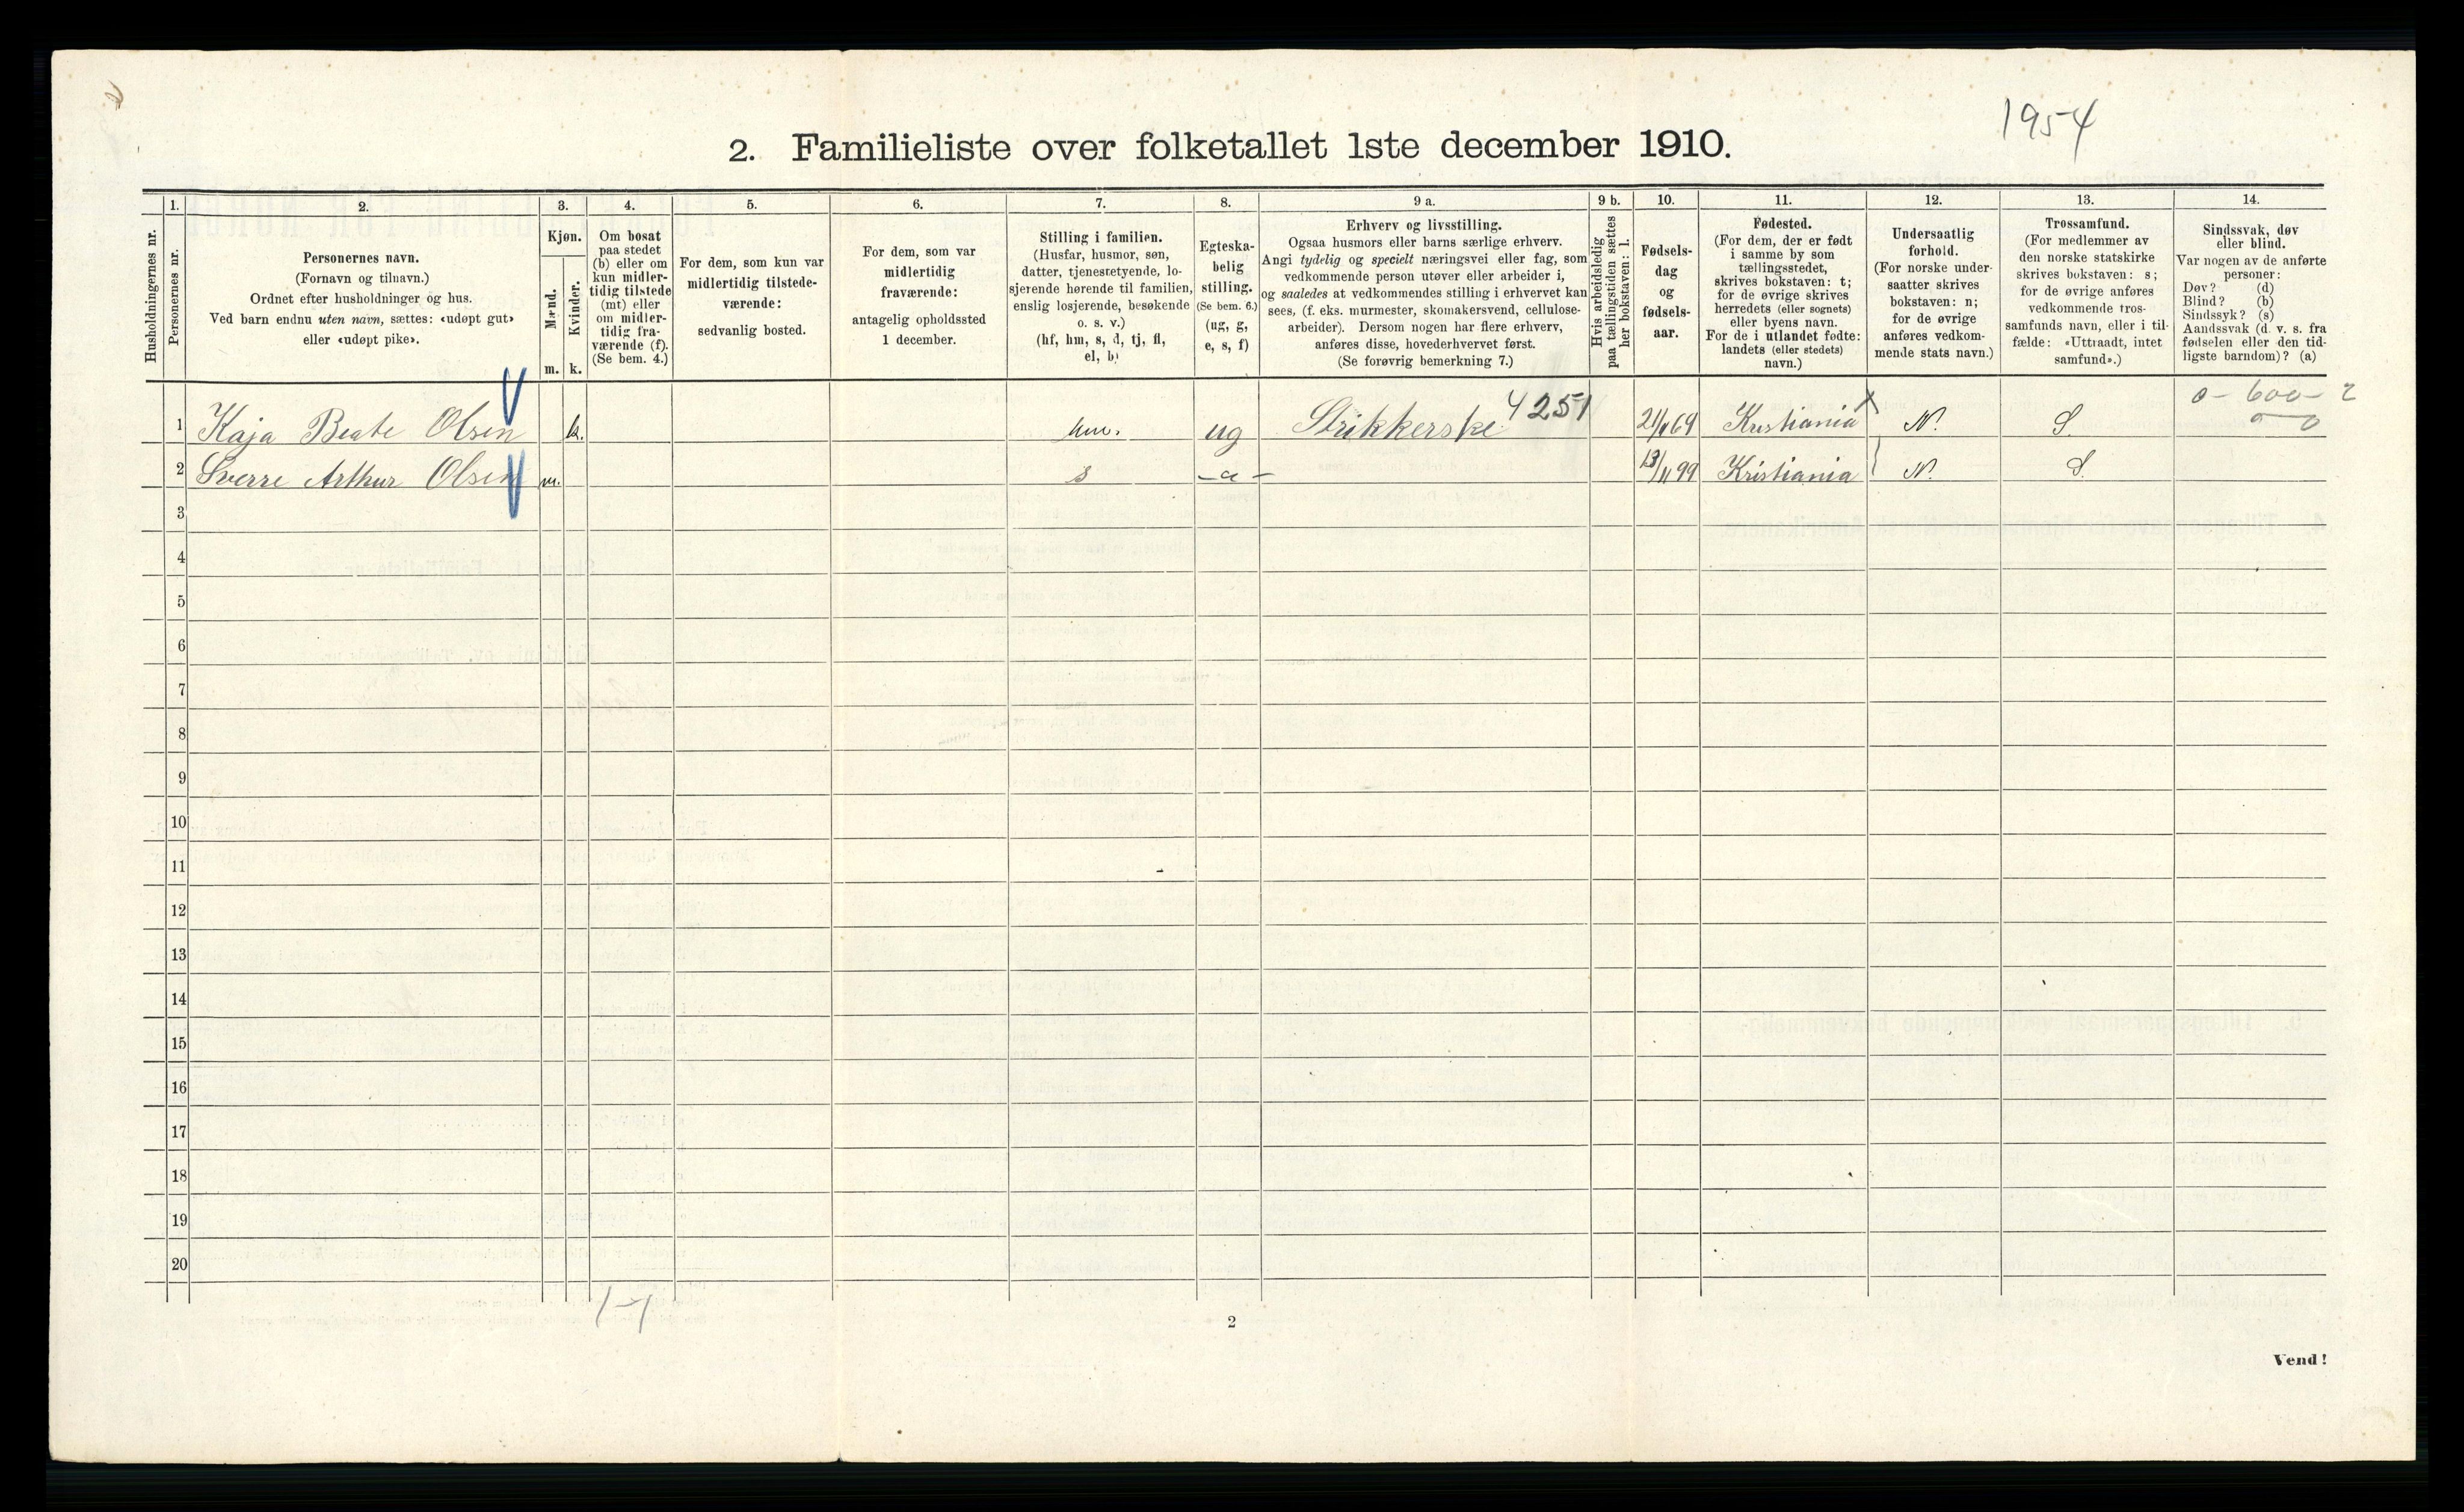 1954
2. Familieliste over folketallet 1ste december 1910.
1. 2. 3. 4. 5. 6. 7. 8. 9 a. 9 b. 10. 11. 12. 13. 14.
Husholdningernes nr.
Personernes nr.
Personernes navn.
(Fornavn og tilnavn.)
Ordnet efter husholdninger og hus.
Ved barn endnu uten navn, sættes: «udøpt gut»
eller «udøpt pike».
Kjøn.
Mænd.
Kvinder.
m. k.
Om bosat
paa stedet
(b) eller om
kun midler-
tidig tilstede
(mt) eller
om midler-
tidig fra-
værende (f).
(Se bem. 4.)
For dem, som kun var
midlertidig tilstede-
værende:
sedvanlig bosted.
For dem, som var
midlertidig
fraværende:
antagelig opholdssted
1 december.
Stilling i familien.
(Husfar, husmor, søn,
datter, tjenestetyende, lo-
sjerende hørende til familien,
enslig losjerende, besøkende
o. s. v.)
(hf, hm, s, d, tj, fl,
el, b)
Egteska-
belig
stilling.
(Se bem. 6.)
(ug, g,
e, s, f)
Erhverv og livsstilling.
Ogsaa husmors eller barns særlige erhverv.
Angi tydelig og specielt næringsvei eller fag, som
vedkommende person utøver eller arbeider i,
og saaledes at vedkommendes stilling i erhvervet kan
sees, (f. eks. murmester, skomakersvend, cellulose-
arbeider). Dersom nogen har flere erhverv,
anføres disse, hovederhvervet først.
(Se forøvrig bemerkning 7.)
Hvis arbeidsledig
paa tællingstiden sættes
her bokstaven: l.
Fødsels-
dag
og
fødsels-
aar.
Fødested.
(For dem, der er født
i samme by som
tællingsstedet,
skrives bokstaven: t;
for de øvrige skrives
herredets (eller sognets)
eller byens navn.
For de i utlandet fødte:
landets (eller stedets)
navn.)
Undersaatlig
forhold.
(For norske under-
saatter skrives
bokstaven: n;
for de øvrige
anføres vedkom-
mende stats navn.)
Trossamfund.
(For medlemmer av
den norske statskirke
skrives bokstaven: s;
for de øvrige anføres
vedkommende tros-
samfunds navn, eller i til-
fælde: «Uttraadt, intet
samfund».)
Sindssvak, døv
eller blind.
Var nogen av de anførte
personer:
Døv? (d)
Blind? (b)
Sindssyk? (s)
Aandssvak (d. v. s. fra
fødselen eller den tid-
ligste barndom)? (a)
0 - 600 - 2
0 0
1 Kaja Beate Olsen k. hm. ug Strikkerske 4251 21/11 69 Kristiania x N. S.
2 Sverre Arthur Olsen m. s - a - 13/11 99 Kristiania N. S.
3
4
5
6
7
8
9
10
11
12
13
14
15
16
17
18
19
20
1-1
2
Vend!